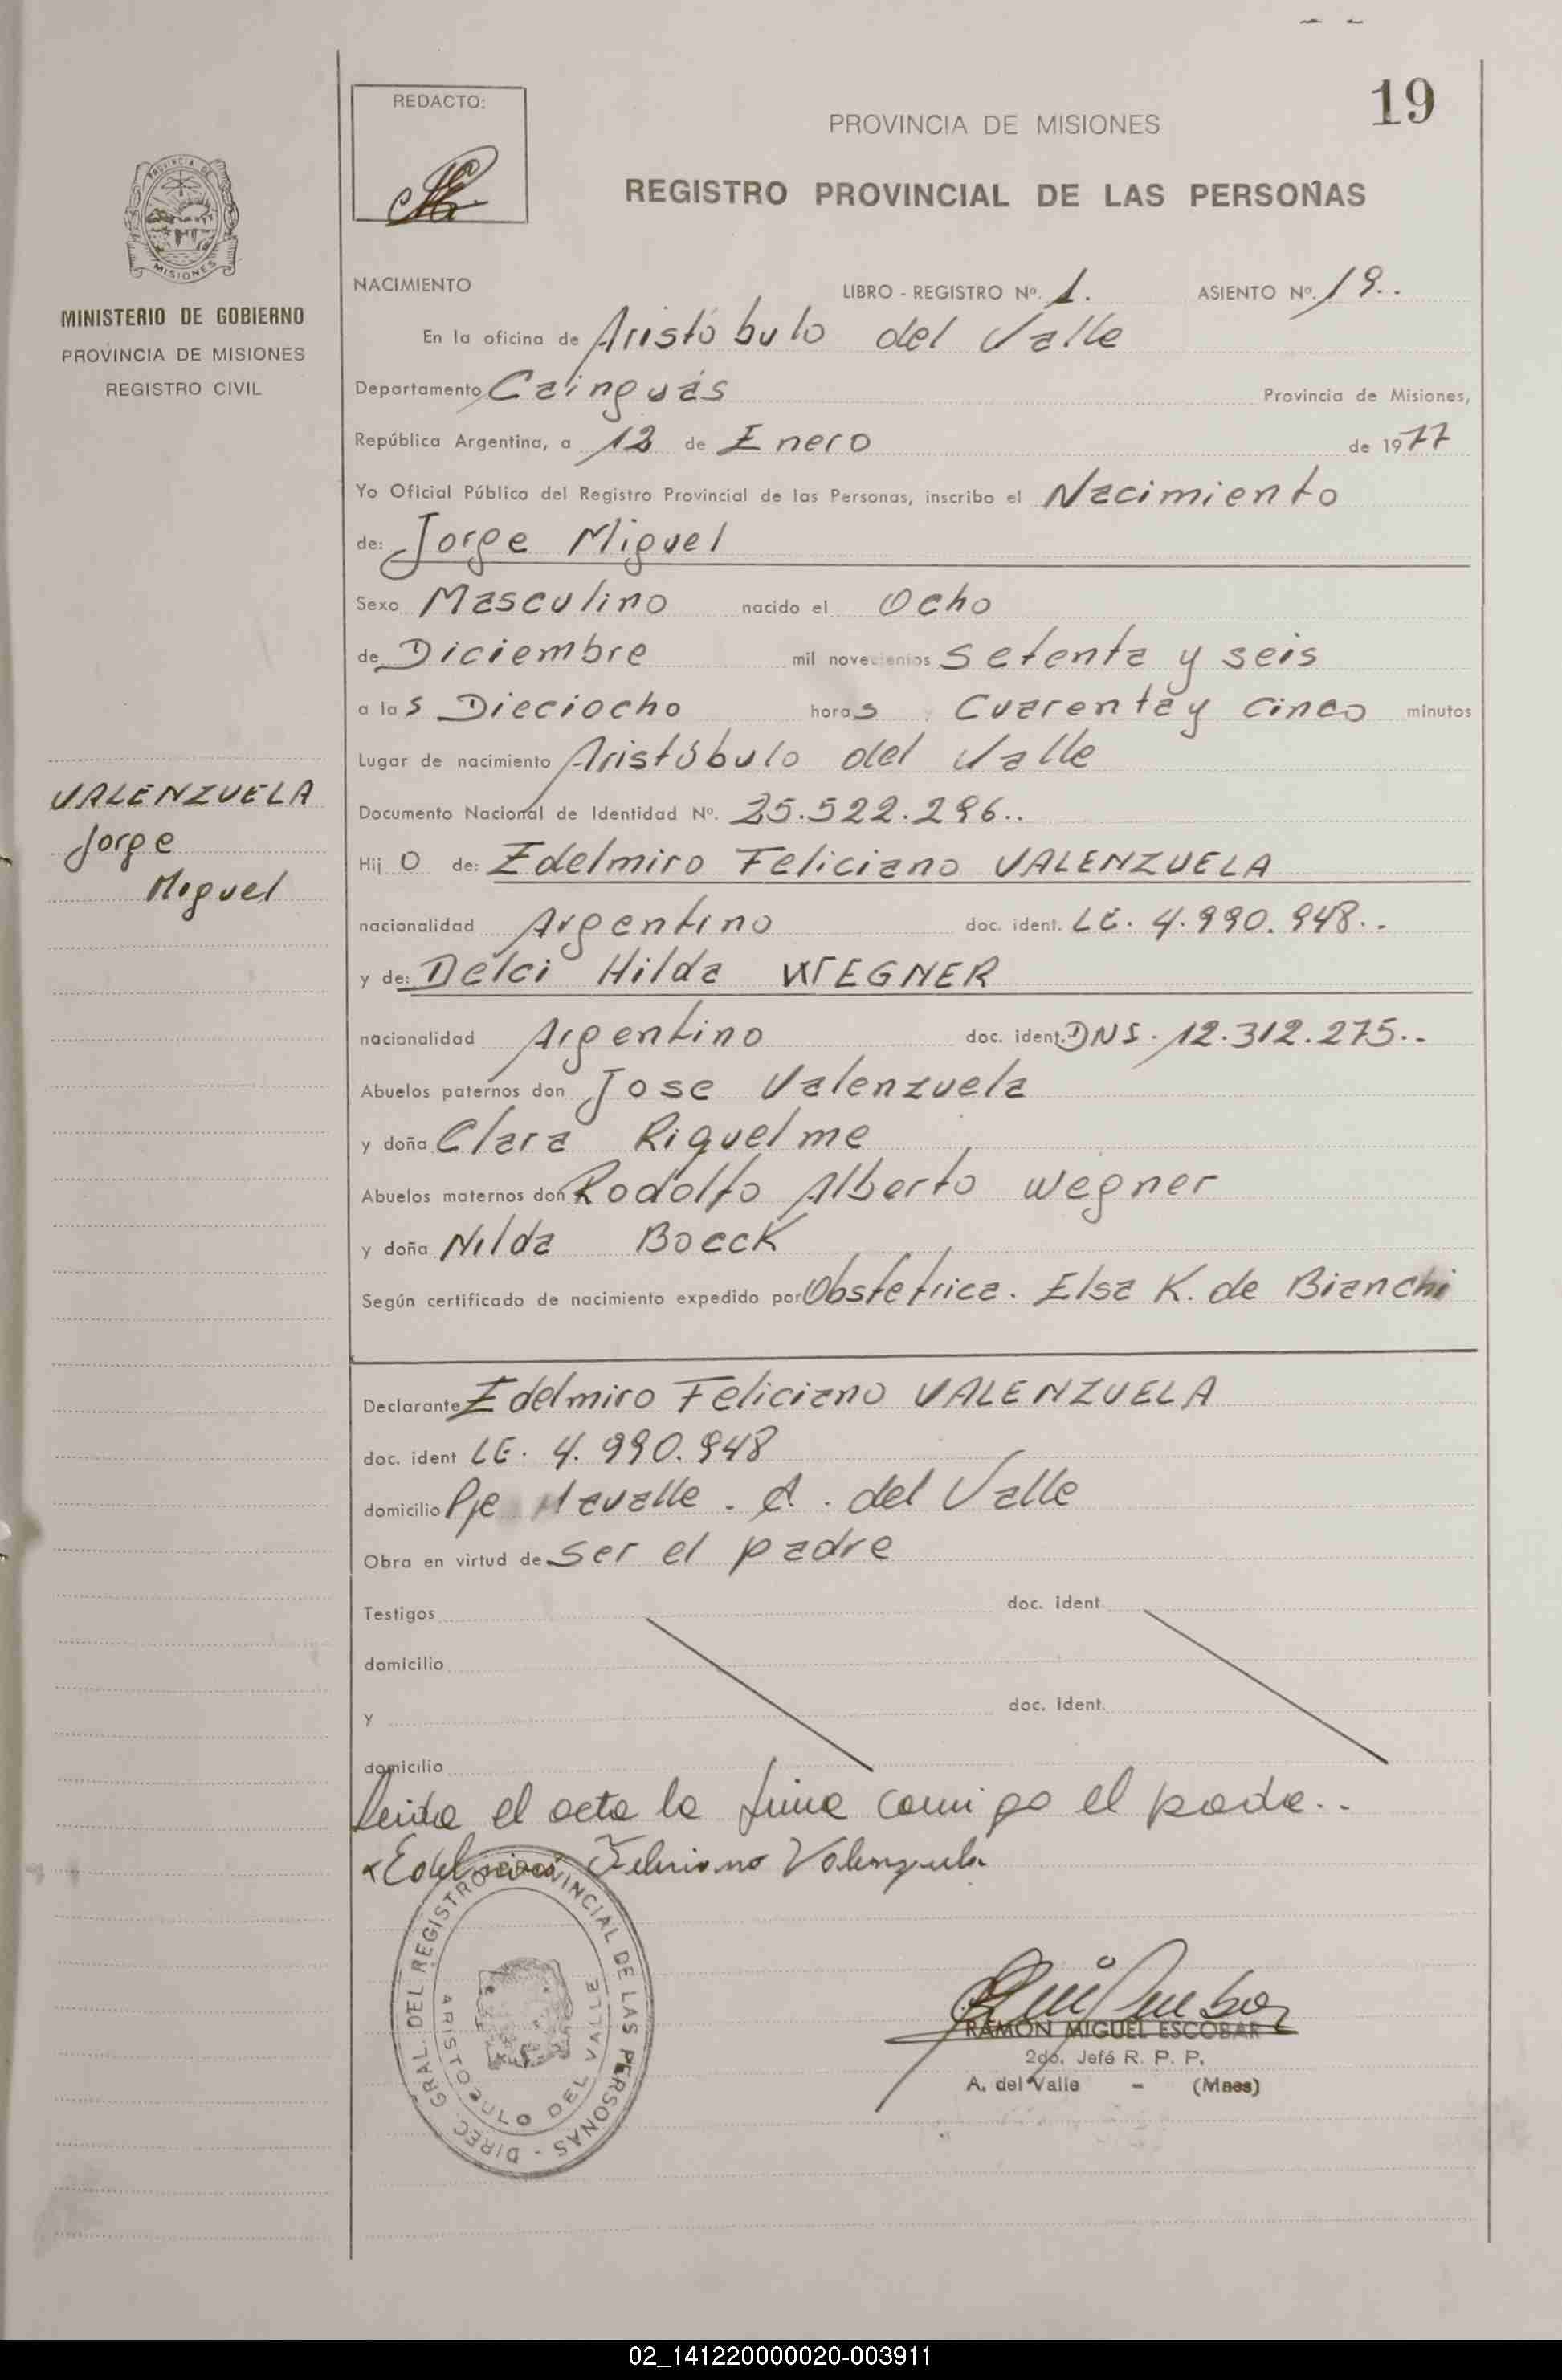 19
REDACTO:
PROVINCIA DE MISIONES
REGISTRO PROVINCIAL DE LAS PERSONAS
PROVINCIA DE
MISIONES
MINISTERIO DE GOBIERNO
PROVINCIA DE MISIONES
REGISTRO CIVIL
NACIMIENTO LIBRO - REGISTRO Nº. 1. ASIENTO Nº. 19..
En la oficina de Aristóbulo del Valle
Departamento Cainguás Provincia de Misiones,
República Argentina, a 12 de Enero de 1977
Yo Oficial Público del Registro Provincial de las Personas, inscribo el Nacimiento
de: Jorge Miguel
Sexo Masculino nacido el Ocho
de Diciembre mil novecientos setenta y seis
a las Dieciocho horas Cuarenta y cinco minutos
Lugar de nacimiento Aristóbulo del Valle
Documento Nacional de Identidad Nº. 25.522.296..
VALENZUELA
Jorge
Miguel
Hij o de: Edelmiro Feliciano VALENZUELA
nacionalidad Argentino doc. ident. LE. 4.990.948..
y de: Delci Hilda WEGNER
nacionalidad Argentino doc. ident. DNI. 12.312.275..
Abuelos paternos don Jose Valenzuela
y doña Clara Riquelme
Abuelos maternos don Rodolfo Alberto Wegner
y doña Nilda Boeck
Según certificado de nacimiento expedido por Obstetrica. Elsa K. de Bianchi
Declarante Edelmiro Feliciano VALENZUELA
doc. ident LE. 4.990.948
domicilio Pje . A. del Valle
Obra en virtud de ser el padre
Testigos doc. ident
domicilio
y doc. ident.
domicilio
Leida el acta la firma conmigo el padre..
Edelmiro Feliciano Valenzuela
DIREC. GRAL. DEL REGISTRO PROVINCIAL DE LAS PERSONAS -
ARISTOBULO DEL VALLE
RAMON MIGUEL ESCOBAR
2do. Jefe R. P. P.
A. del Valle - (Mnes)
02_141220000020-003911